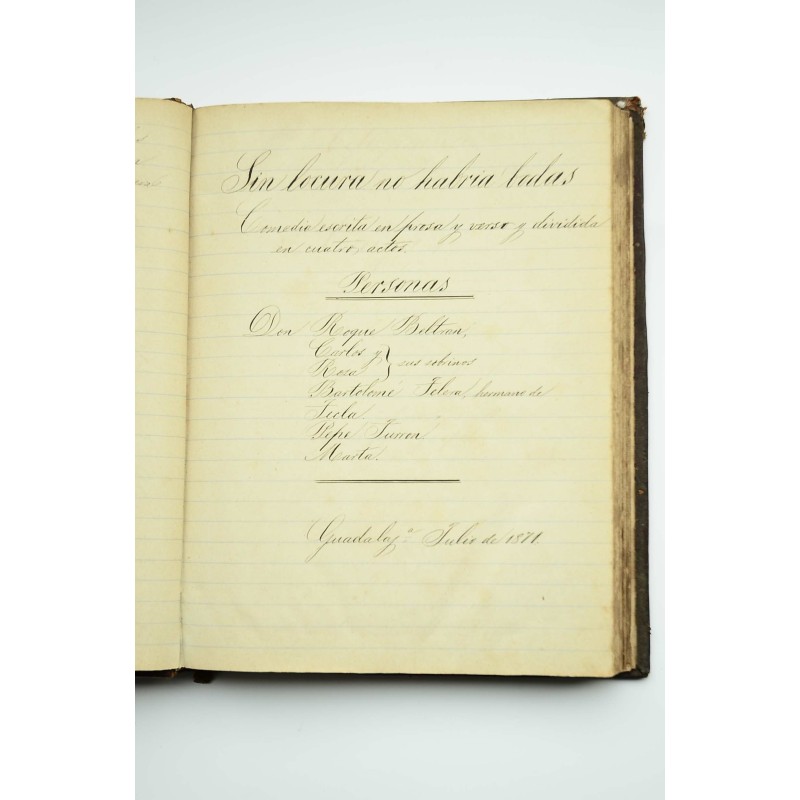 Sin locura no habria bodas
Comedia escrita en prosa y verso y dividida
en cuatro actos.
Personas
Don Roque Beltran,
Carlos y
Rosa } sus sobrinos
Bartolomé hermano de
Tecla
Pepe
Marta.
Guadalaj.ª Julio de 1871.